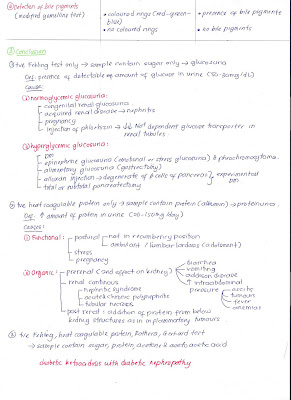 ④ Detection of bile pigments
(modified gmelline test)
• coloured rings (red-green-blue)
• no coloured rings
• presence of bile pigments
• no bile pigments
② Conclusion
① +ve Fehling test only → sample contain sugar only → glucosuria
Def: presence of detectable amount of glucose in urine (50-30mg/dL)
Cause:
① normoglycemic glucosuria:
- congenital renal glucosuria
- acquired renal disease → nephritis
- pregnancy
- injection of phlorhizin → ↓↓ Na+ dependent glucose transporter in
renal tubules
② hyperglycemic glucosuria:
- DM
- epinephrine glucosuria (emotional or stress glucosuria) & pheochromocytoma
- alimentary glucosuria (gastrectomy)
- alloxan injection → degenerate of β cells of pancreas
- total or subtotal pancreatectomy
experimental
DM
② +ve heat coagulable protein only → sample contain protein (albumin) → proteinuria.
Def: ↑ amount of protein in urine
Causes:
① Functional:
- postural
- not in recumbency position
- ambulant / lumbar lordosis (adolescent)
- stress
- pregnancy
② Organic:
- prerenal (2nd effect on kidney)
- diarrhea
- vomiting
- addison disease
- ↑ intraabdominal
pressure
- ascite
- tumours
- fever
- anemias
- renal continous
- nephrotic syndrome
- acute & chronic pyelonephritis
- tubular necrosis
- post renal: addition of protein from below
kidney structures as in inflammatory tumours
③ +ve Fehling, heat coagulable protein, Rothera, Gerhard test
→ sample contain sugar, protein, acetone & acetoacetic acid
diabetic ketoacidosis with diabetic nephropathy